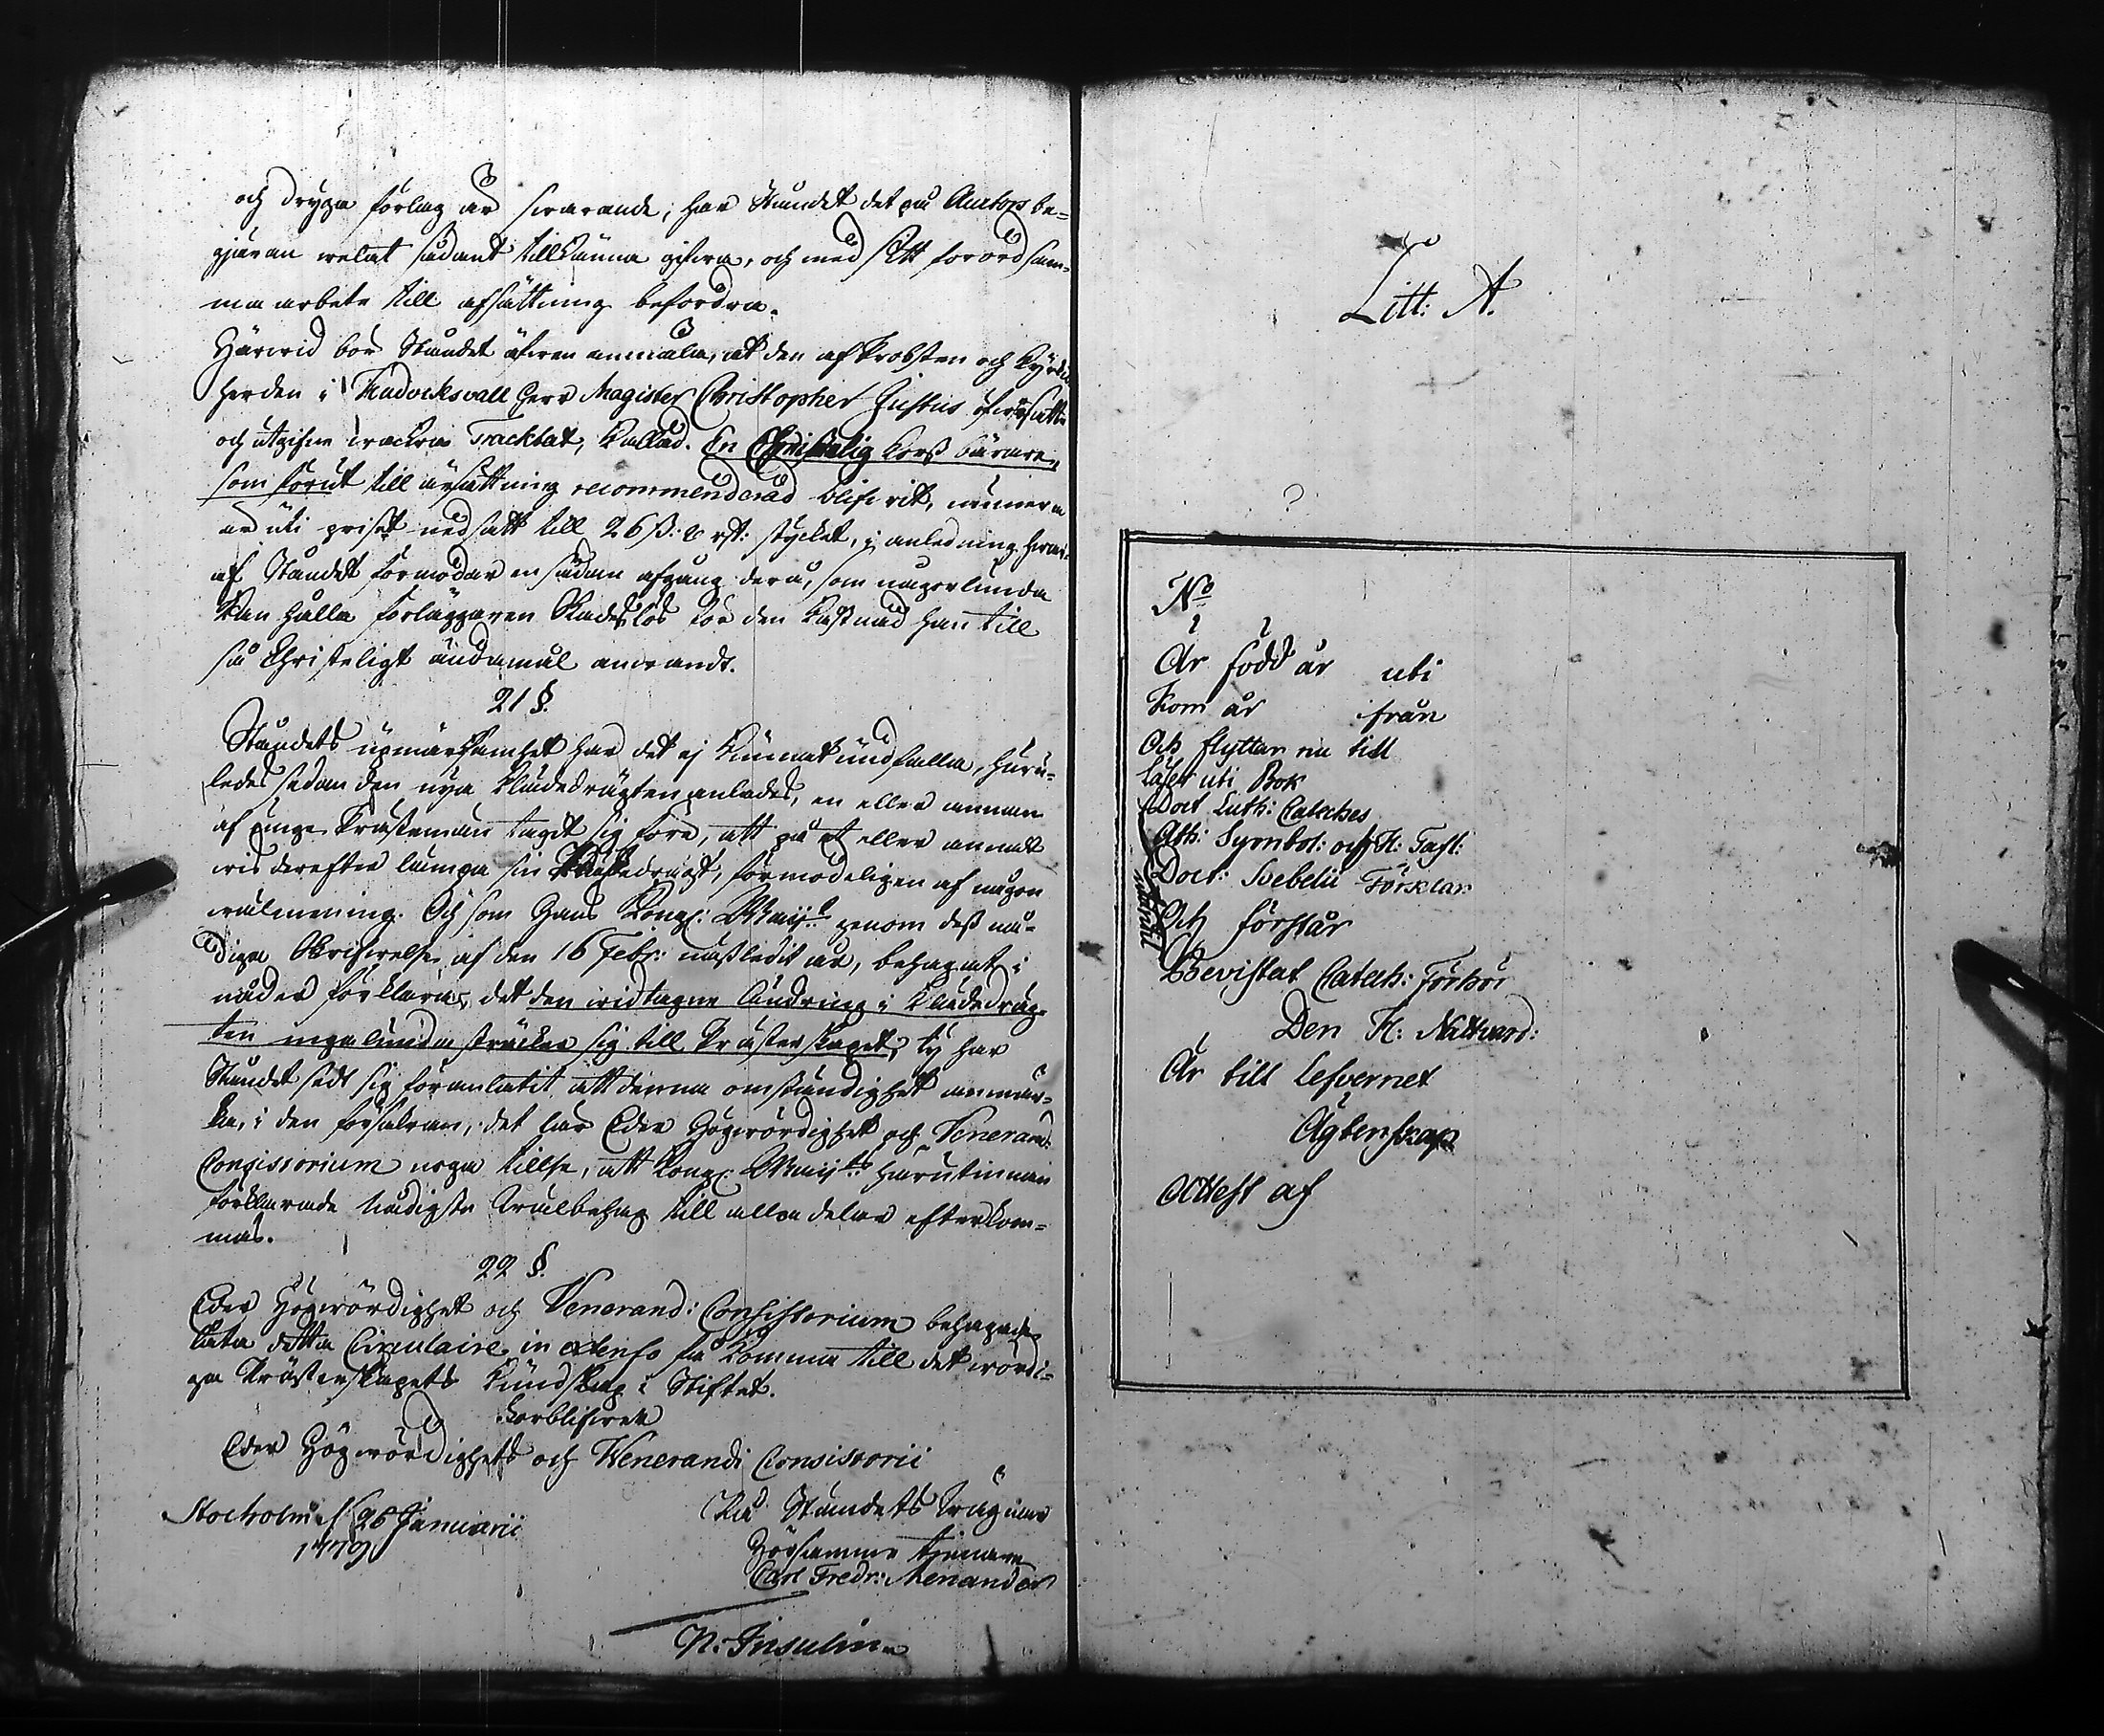 och dryga förlag är swarande, har Ståndet det på Auctors be-
gjäran welat sådant tillkänna gifwa, och med sitt förord sam-
ma arbete till afsättning befordra.
Härwid bör Ståndet äfwen anmäla, at den af Probsten och Kyrko
herden i Hudvicksvall Herr Magister Christopher öfwersatte
och utgifne wackra Tracktat, kallad. En Christelig Kors bärare,
som förut till afsättning recommenderad blifwit, numera
är uti priset nedsatt till 26 ß: 8 rst: stycket, i anledning hwar-
af Ståndet förmodar en sådan afgång derå, som någorlunda
kan hålla förläggaren skadeslös för den kostnad han till
så Christeligt ändamål anwändt.
21 §.
Ståndets upmärksamhet har det ej kunnat undfalla, huru-
ledes sedan den nya klädedrägten anlades, en eller annan
af unge Prästemän tagit sig före, att på et eller annat
wis derefter lämpa sin Prästedrägt, förmodeligen af någon
wälmening. Och som Hans Kongl: Maij:t genom dess nå-
diga Skrifwelse af den 16 Febr: nästledit år, behagat i
nåder förklara, det den widtagne ändring i klädedräg-
ten ingalunda sträcker sig till Prästerskapet; ty har
Ståndet sedt sig föranlåtit att denna omständighet anmär-
ka, i den försäkran, det lär Eder Högwördighet och Venerand:
Consistorium noga tillse, att Kongl: Maij:ts härutinnan
förklarade Nådigste Wälbehag till alla delar efterkom-
mas.
22 §.
Eder Högwördighet och Venerand: Consistorium behagade
låta detta Circulaire in extenso få komma till det wördi-
ga Prästerskapets kundskap i Stiftet.
Förblifwer
Eder Högwördighets och Venerandi Consistorii
Stocholm d 26 Januarii
1779
På Ståndets wägnar
Hörsamme tjenare
Carl Fredr: Menander
N: Insulin
Litt: A.
No
Är född år uti
Kom år från
Och flyttar nu till
Läser uti Bok
Doct Luth: Cateches
Ath: Symbol: och H: Tafl:
Doct: Svebelii Förklar:
utantil
Och förstår
Bevistat Catech: Förhör
Den H: Nattvard:
Är till lefvernet
Ägtenskap
Attest af